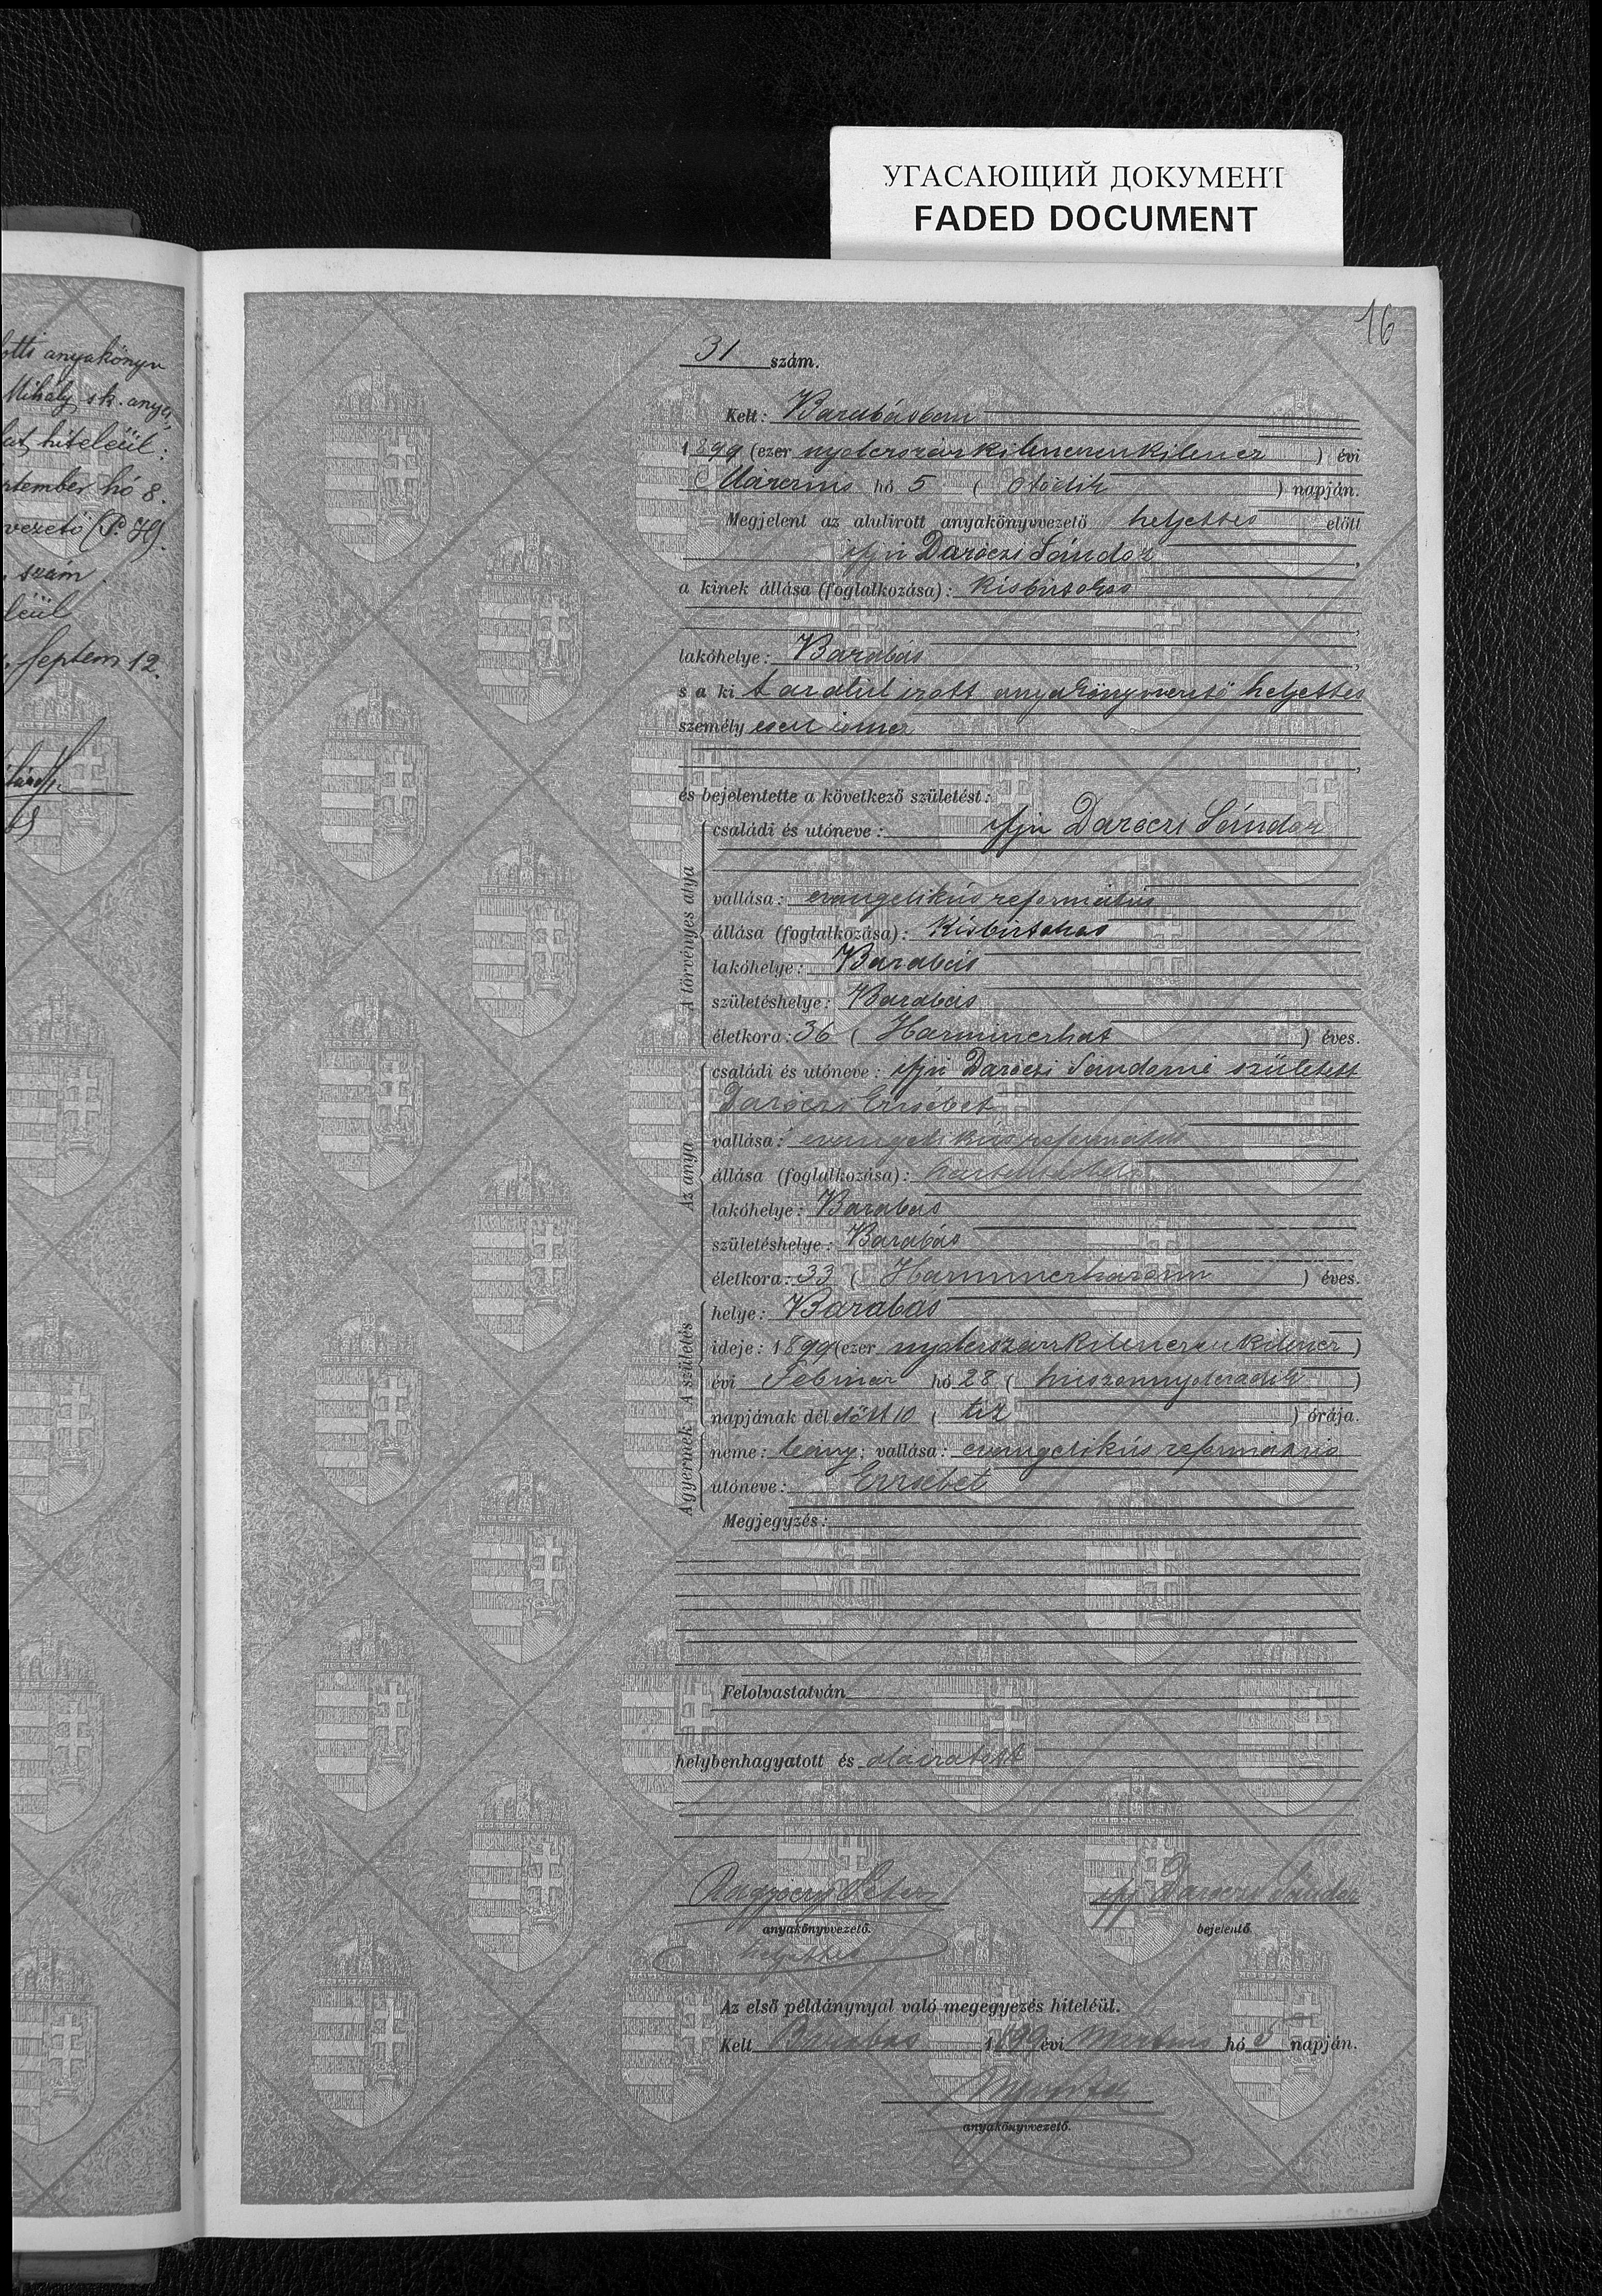 УГАСАЮЩИЙ ДОКУМЕНТ
FADED DOCUMENT
otti anyakönyv
Mihály sk. anya
hiteléül:
ptember hó 8.
vezető (P. H).
szám.
léül
Septem 12.
16
31 szám.
Kelt: Barabásban
1899 (ezer nyolczszázkilenczvenkilencz) évi
Márczius hó 5 (ötödik) napján.
Megjelent az alulirott anyakönyvvezető helyettes előtt
ifjú Daróczi Sándor,
a kinek állása (foglalkozása): kisbirtokos
lakóhelye: Barabás,
s a ki t az alul irott anyakönyvvezető helyettes
személy esen ismer
és bejelentette a következő születést:
A törvényes atya
családi és utóneve: ifjú Daróczi Sándor
vallása: evangelikus református
állása (foglalkozása): Kisbirtokos
lakóhelye: Barabás
születéshelye: Barabás
életkora: 36 (Harminczhat) éves.
Az anya
családi és utóneve: ifjú Daróczi Sándorné született
Daróczi Erzsébet
vallása: evangelikus református
állása (foglalkozása):
lakóhelye: Barabás
születéshelye: Barabás
életkora: 33 (Harminczhárom) éves.
A születés
helye: Barabás
ideje: 1899 (ezer nyolczszázkilenczvenkilencz)
évi Február hó 28 (huszonnyolczadik)
napjának dél előtt 10 (tiz) órája.
A gyermek
neme: leány; vallása: evangelikus református
utóneve: Erzsébet
Megjegyzés:
Felolvastatván
helybenhagyatott és aláiratott
Péter
ifj Daróczi Sándor
anyakönyvvezető.
bejelentő.
helyettes
Az első példánynyal való megegyezés hiteléül.
Kelt Barabás 1899 évi Martius hó 5 napján.
anyakönyvvezető.